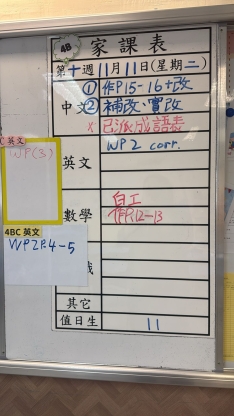 4B
家課表
第十週11月11日(星期二)
中文
① 作P15-16+改
② 補改、實改
X 已派成語表
英文
WP2 corr.
C 英文
WP(3)
數學
白工
作P.12-13
4BC 英文
WP2P.4-5
其它
值日生
11